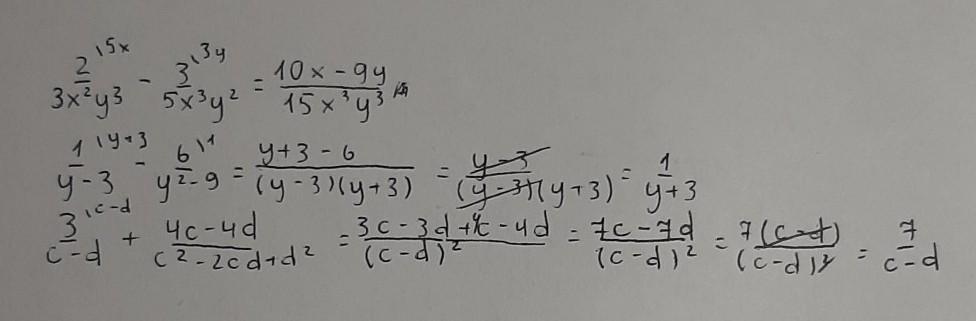 2/(3x²y³) \5x - 3/(5x³y²) \3y = (10x - 9y)/(15x³y³)
1/(y-3) \y+3 - 6/(y²-9) \1 = (y+3-6)/((y-3)(y+3)) = (y-3)/((y-3)(y+3)) = 1/(y+3)
3/(c-d) \c-d + (4c-4d)/(c²-2cd+d²) = (3c-3d+4c-4d)/(c-d)² = (7c-7d)/(c-d)² = 7(c-d)/(c-d)² = 7/(c-d)